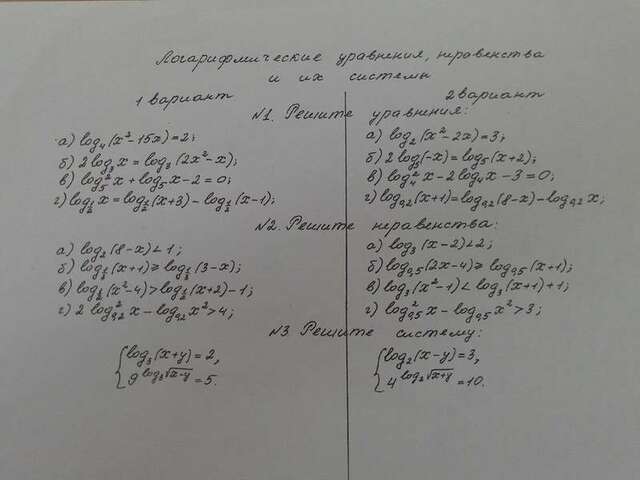 Логарифмические уравнения, неравенства
и их системы
1 вариант
2 вариант
№1. Решите уравнения:
а) log₄(x²-15x)=2;
б) 2log₃x = log₃(2x²-x);
в) log₅²x + log₅x - 2 = 0;
г) log_{1/2}x = log_{1/2}(x+3) - log_{1/2}(x-1);
а) log₂(x²-2x)=3;
б) 2log₅(-x)=log₅(x+2);
в) log₄²x - 2log₄x - 3 = 0;
г) log₀,₂(x+1)=log₀,₂(8-x)-log₀,₂x;
№2. Решите неравенства:
а) log₂(8-x)<1;
б) log_{1/3}(x+1)≥log_{1/3}(3-x);
в) log_{1/2}(x²-4)>log_{1/2}(x+2)-1;
г) 2log²₀,₂x - log₀,₂x²>4;
а) log₃(x-2)<2;
б) log₀,₅(2x-4)≥log₀,₅(x+1);
в) log₃(x²-1)<log₃(x+1)+1;
г) log²₀,₅x - log₀,₅x²>3;
№3. Решите систему:
log₃(x+y)=2,
9^{log₃√(x-y)}=5.
log₂(x-y)=3,
4^{log₂√(x+y)}=10.